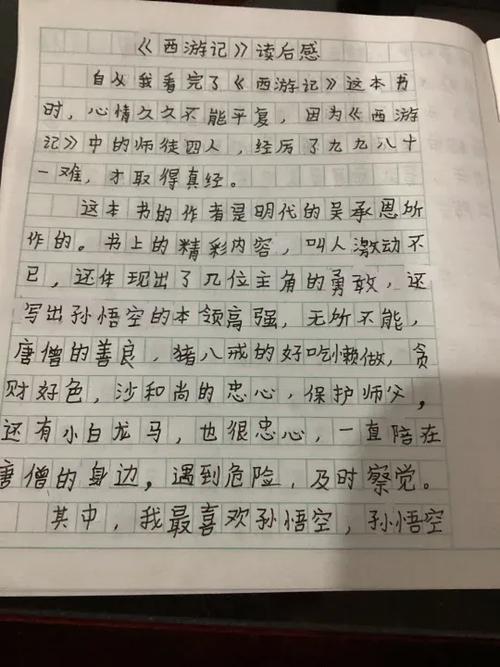 《西游记》读后感
自从我看完了《西游记》这本书
时，心情久久不能平复，因为《西游
记》中的师徒四人，经历了九九八十
一难，才取得真经。
这本书的作者是明代的吴承恩所
作的。书上的精彩内容，叫人激动不
已，还体现出了几位主角的勇敢，还
写出孙悟空的本领高强，无所不能，
唐僧的善良，猪八戒的好吃懒做，贪
财好色，沙和尚的忠心，保护师父，
还有小白龙马，也很忠心，一直陪在
唐僧的身边，遇到危险，及时察觉。
其中，我最喜欢孙悟空，孙悟空